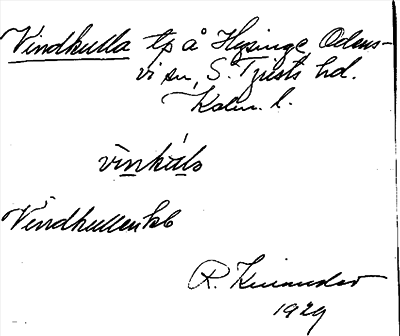 Vindkulla tp å Hysinge, Odens-
vi sn, S. Tjusts hd.
Kalm. l.
Vindkullen kb
R. Kinander
1929